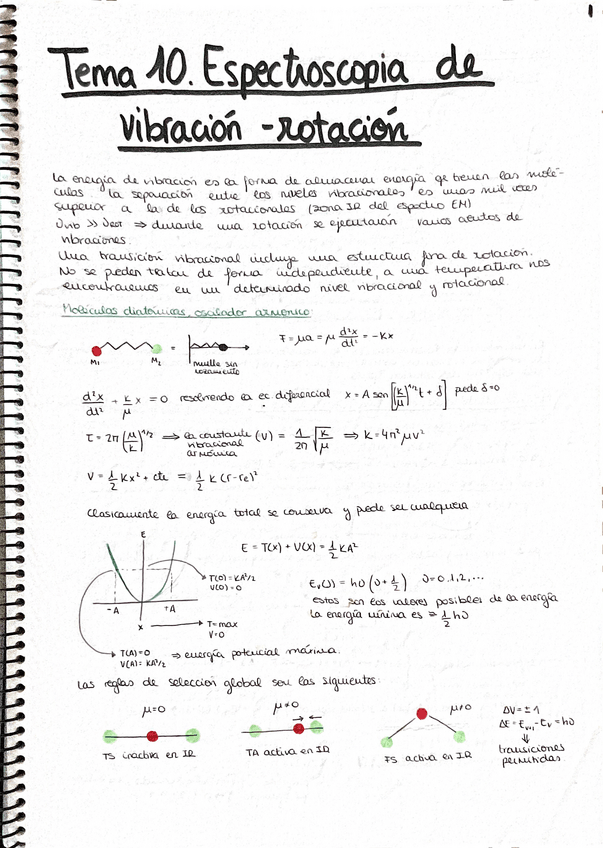 1
Tema 10. Espectroscopia de
vibración - rotación
La energía de vibración es la forma de almacenar energía qe tienen las molé-
culas. La separación entre los niveles vibracionales es unas mil veces
superior a la de los rotacionales (zona IR del espectro EM)
≫ ⇒ durante una rotación se ejecutarán varios cientos de
vibraciones.
Una transición vibracional incluye una estructura fina de rotación.
No se pueden tratar de forma independiente, a una temperatura nos
encontraremos en un determinado nivel vibracional y rotacional.
Moléculas diatómicas, oscilador armónico:
M1 M2 =
muelle sin
rozamiento
F = μa = μ d²x/dt² = -Kx
d²x/dt² + K/μ x = 0 resolviendo la ec diferencial x = A sen [(K/μ)^1/2 t + δ] pede δ=0
τ = 2π (μ/K)^1/2 ⇒ la constante vibracional armónica (ν) = 1/2π √K/μ ⇒ K = 4π²μν²
V = 1/2 Kx² + cte = 1/2 K (r-re)²
Clasicamente la energía total se conserva y pede ser cualquiera
E
E = T(x) + V(x) = 1/2 KA²
T(0) = KA²/2
V(0) = 0
-A +A
x
T = max
V = 0
T(A) = 0
V(A) = KA²/2 ⇒ energía potencial máxima.
Ev(J) = hν (v + 1/2) v = 0, 1, 2, ...
estos son los valores posibles de la energía
la energía mínima es = 1/2 hν
Las reglas de selección global son las siguientes:
μ=0 μ≠0 μ≠0
TS inactiva en IR TA activa en IR FS activa en IR
ΔV = ± 1
ΔE = Ev+1 - Ev = hν
⇓
transiciones
permitidas.